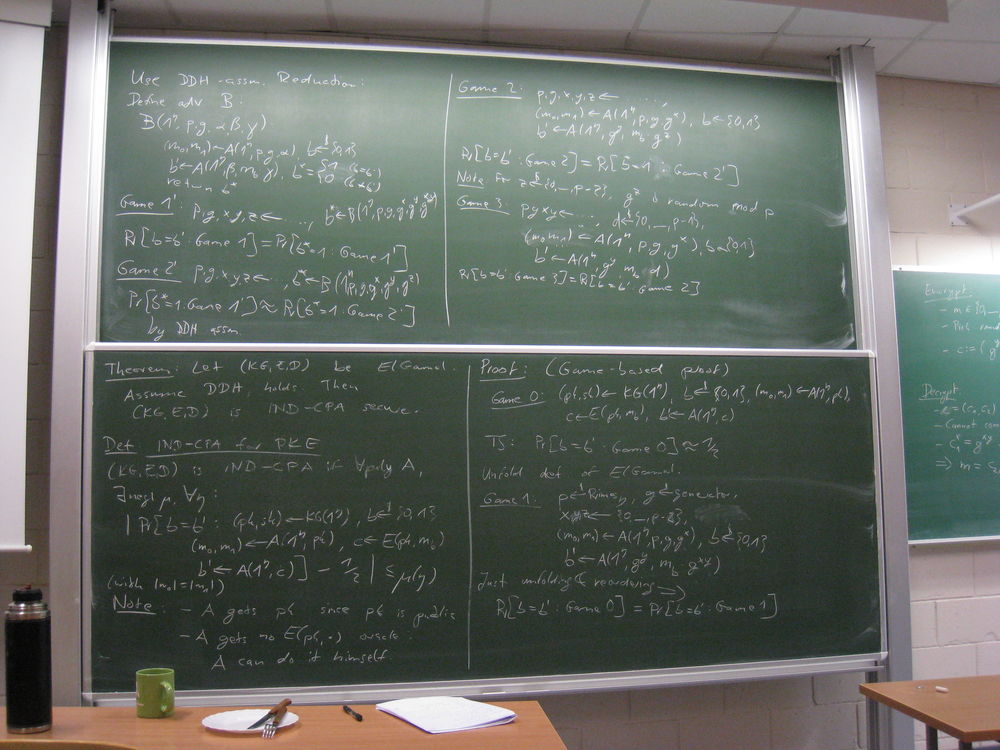 Use DDH-assm. Reduction:
Define adv B:
B(1^η, p, g, α, β, γ)
(m₀,m₁)←A(1^η, p, g, α), b←$ {0,1}
b'←A(1^η, β, m_b·γ), b* = {1 (b=b') 0 (b≠b')
return b*
Game 1': p,g,x,y,z ← ..., b*←B(1^η, p, g, g^x, g^y, g^xy)
Pr[b=b' : Game 1] = Pr[b*=1 : Game 1']
Game 2' p,g,x,y,z ← ..., b*←B(1^η, p, g, g^x, g^y, g^z)
Pr[b*=1 : Game 1'] ≈ Pr[b*=1 : Game 2']
by DDH assm.
Game 2: p,g,x,y,z ← ...,
(m₀,m₁) ← A(1^η, p, g, g^x), b ← {0,1}
b' ← A(1^η, g^y, m_b·g^z)
Pr[b=b' : Game 2] = Pr[b*=1 : Game 2']
Note: For z ←$ {0,...,p-2}, g^z is random mod p
Game 3 p g x y ← ..., d ←$ {0,...,p-1},
(m₀,m₁) ← A(1^η, p, g, g^x), b ← {0,1}
b' ← A(1^η, g^y, m_b
Pr[b=b' : Game 3] = Pr[b=b' : Game 2]
Theorem: Let (KG,E,D) be ElGamal.
Assume DDH holds. Then
(KG,E,D) is IND-CPA secure.
Def IND-CPA for PKE
(KG,E,D) is IND-CPA if ∀poly A,
∃negl μ, ∀η:
| Pr[b=b' : (pk,sk) ← KG(1^η), b ←$ {0,1}
(m₀,m₁) ← A(1^η, pk), c ← E(pk, m_b)
b' ← A(1^η, c)] − 1/2 | ≤ μ(η)
(with |m₀|=|m₁|)
Note: - A gets pk since pk is public
- A gets no E(pk, ·) oracle.
A can do it himself.
Proof: (Game-based proof)
Game 0: (pk,sk) ← KG(1^η), b ←$ {0,1}, (m₀,m₁) ← A(1^η, pk),
c ← E(pk, m_b), b' ← A(1^η, c)
TS: Pr[b=b' : Game 0] ≈ 1/2
Unfold def of ElGamal.
Game 1: p ← Primes_η, g ← generator,
x,y,z ← {0,...,p-2},
(m₀,m₁) ← A(1^η, p, g, g^x), b ←$ {0,1}
b' ← A(1^η, g^y, m_b·g^xy)
Just unfolding & reordering =>
Pr[b=b' : Game 0] = Pr[b=b' : Game 1]
Encrypt
- m ∈ {0,
- Pick rand
- c := (g
Decrypt
- c = (c₀, c₁)
- Cannot com
- c₁^x = g^xy
=> m =